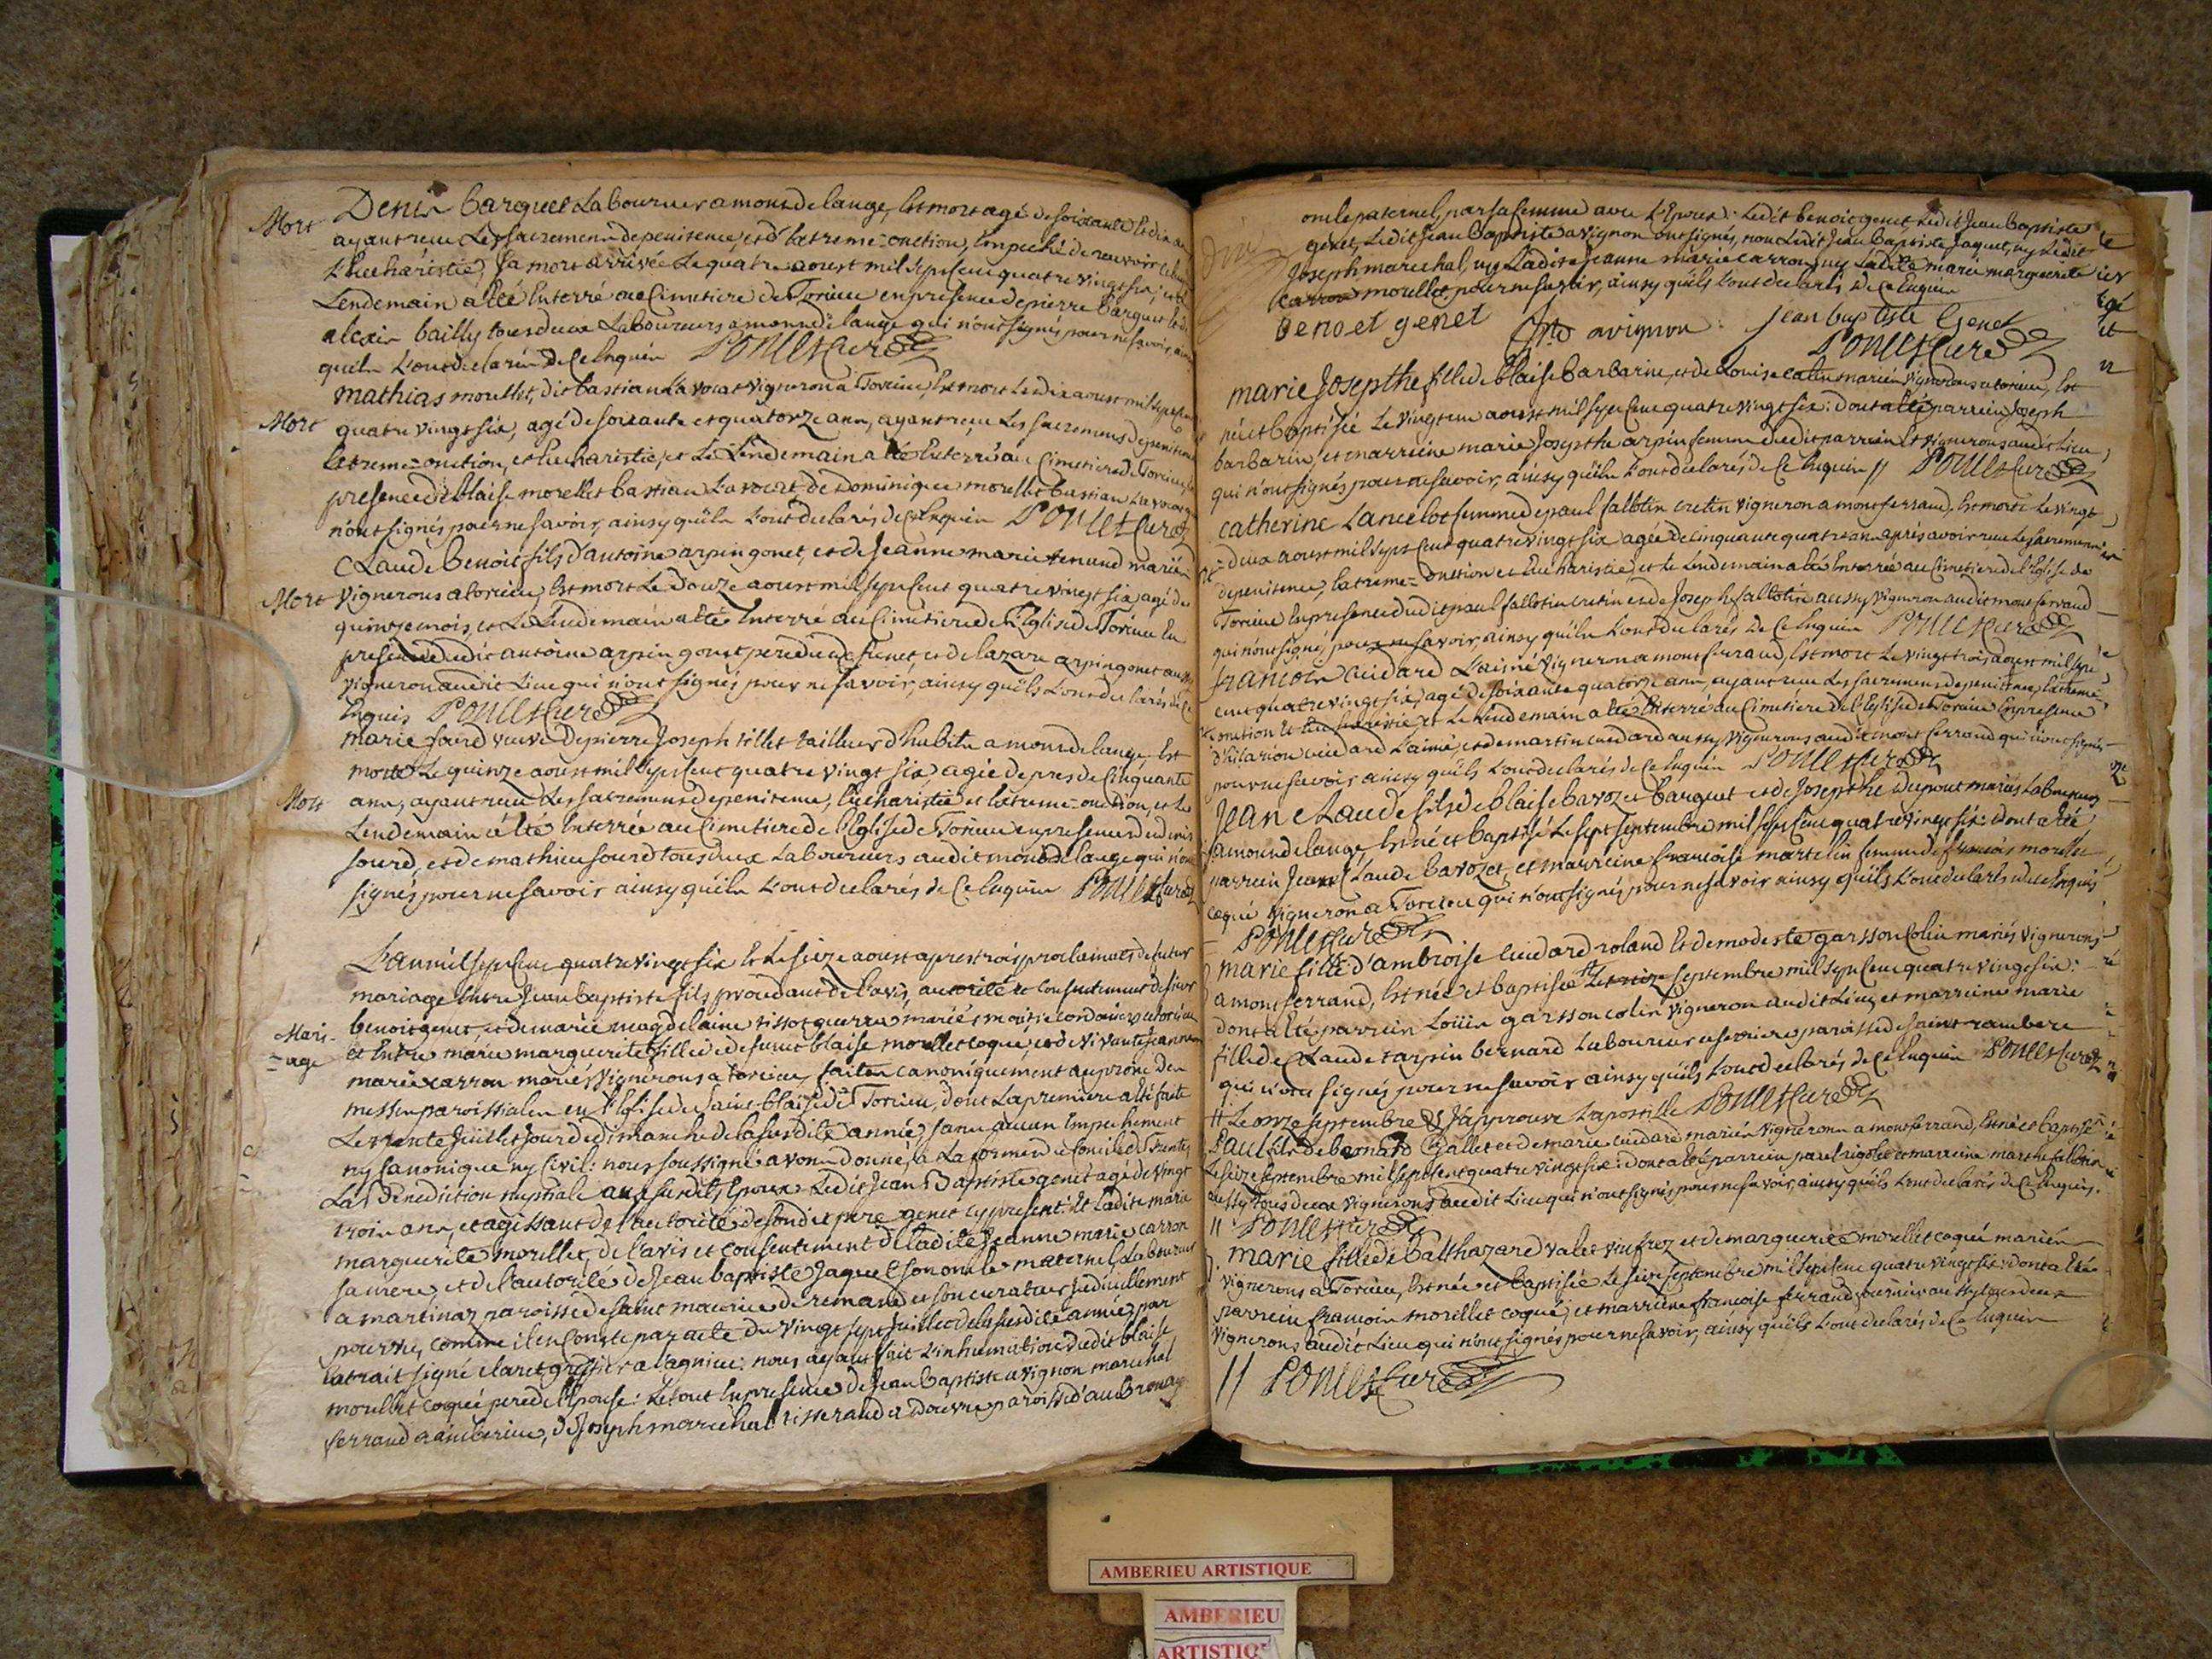 Mort
Denis barquet Laboureur a mont de lange, Est mort agé de soixante et dix an
ayant reçu Les sacremens de penitence, et d'extreme-onction, Empeché de recevoir
L'Eucharistie, sa mort arrivée Le quatre aoust mil sept Cent quatre vingt six, et Le
Lendemain a Eté Enterré au Cimetiere de Torcieu en presence de pierre barquet
alexis bailly tous deux Laboureurs a mont de lange qui n'ont signés pour ne savoir, ainsy
qu'ils L'ont declarés de Ce Enquis Poncet Curé
Mort
mathias morellet, dit bastian Lavocat vigneron a Torcieu, Est mort Le dix aoust mil sept Cent
quatre vingt six, agé de soixante et quatorze ans, ayant reçu Les sacremens de penitence
Extreme-onction, et Eucharistie, et Le Lendemain a Eté Enterré au Cimetiere de Torcieu, en
presence de blaise morellet bastian Lavocat, de Dominique morellet bastian Lavocat qui
n'ont signés pour ne savoir, ainsy qu'ils L'ont declarés de Ce Enquis Poncet Curé
Mort
Claude benoit fils d'antoine arpin gonet, et de Jeanne marie tenand mariés
vignerons a torcieu, Est mort Le Douze aoust mil sept Cent quatre vingt six, agé de
quinze mois, et Le Lendemain a Eté Enterré au Cimetiere de L'Eglise de Torcieu En
presence dudit antoine arpin gonet pere du defunct, et de lazare arpin gonet aussy
vigneron audit Lieu qui n'ont signés pour ne savoir, ainsy qu'ils L'ont declarés de Ce
Enquis Poncet Curé
Mort
marie sourd veuve De pierre Joseph tillet tailleur d'habits a mont de lange, Est
morte Le quinze aoust mil sept Cent quatre vingt six agée de pres de Cinquante
ans, ayant reçu Les sacremens de penitence, Eucharistie et Extreme-onction, et Le
Lendemain a Eté Enterrée au Cimetiere de L'Eglise de Torcieu en presence de denis
sourd, et de mathieu sourd tous deux Laboureurs audit mont de lange qui n'ont
signés pour ne savoir ainsy qu'ils L'ont declarés de Ce Enquis Poncet Curé
Mari-
-age
L'an mil sept Cent quatre vingt six Et Le seize aoust apres trois proclamats de futur
mariage Entre Jean baptiste fils procedant de l'avis, autorité et Consentement de sieur
benoit genet et de marie magdelaine tissot guerra mariés maitre cordonnier a torcieu
et Entre marie marguerite fille de defunct blaise morellet coque, et de vivante Jeanne
marie carron mariés vignerons a torcieu, faits canoniquement au prone des
messes paroissiales en L'Eglise de saint blaise de Torcieu, dont La premiere a Eté faite
Le trente Juillet Jour de dimanche de la susdite année, sans aucun Empechement
ny Canonique ny Civil: nous soussigné avons donné, a La forme du Concile de Trente,
La Benediction nuptiale aux susdits Epoux Ledit Jean Baptiste genet agé de vingt
trois ans, et agissant de l'autorité de son dit pere genet Cy present: Et Ladite marie
marguerite morellet, de l'avis et Consentement de Ladite Jeanne marie carron
sa mere, et de l'autorité de Jean baptiste Jaquet son oncle maternel, Laboureur
a martinaz paroisse de saint maurice de remand et son curateur Judiciellement
pourvu, comme il en Conste par acte du vingt sept Juillet de la susdite année, par
Extrait signé claret greffier a lagnieu: nous ayant fait L'inhumation dudit blaise
morellet coque pere de l'Epouse: Le tout En presence de Jean baptiste avignon marechal
ferrand a amberieu, de Joseph marechal tisserand a Douvre paroisse d'ambronay
oncle paternel, par sa femme avec L'Epoux: Ledit benoit genet, Ledit Jean baptiste
genet, Ledit Jean Baptiste avignon ont signés, non Ledit Jean baptiste Jaquet, ny Ledit
Joseph marechal, ny Ladite Jeanne marie carron, ny Ladite marie marguerite
carron morellet, pour ne savoir, ainsy qu'ils L'ont declarés de Ce Enquis
benoet genet Jn B avignon Jean baptiste Genet
Poncet Curé
marie Josepthe fille de blaise barbarin, et de Louise catin mariés vignerons a torcieu, Est
née et baptisée Le vingt un aoust mil sept Cent quatre vingt six: dont a Eté parrein Joseph
barbarin, et marreine marie Josepthe arpin femme dudit parrein Et vignerons audit Lieu,
qui n'ont signés pour ne savoir, ainsy qu'ils L'ont declarés de Ce Enquis // Poncet Curé
catherine Lancelot femme de paul fallotin cretin vigneron a montferrand, Est morte Le vingt
deux aoust mil sept Cent quatre vingt six agée de Cinquante quatre ans après avoir reçu Les sacremens
de penitence, Extreme-onction et Eucharistie, et le Lendemain a Eté Enterrée au Cimetiere de L'Eglise de
Torcieu En presence dudit paul fallotin cretin et de Joseph fallotin aussy vigneron audit montferrand
qui n'ont signés pour ne savoir, ainsy qu'ils L'ont declarés de Ce Enquis Poncet Curé
francois cuidard L'ainé vigneron a montferrand, Est mort Le vingt trois aoust mil sept
cent quatre vingt six, agé de soixante quatorze ans, ayant reçu Les sacremens de penitence, Extreme
onction Et Eucharistie, et Le Lendemain a Eté Enterré au Cimetiere de L'Eglise de Torcieu En presence
d'hilarion cuidard L'ainé, et de martin cuidard aussy vignerons audit mont ferrand qui n'ont signés
pour ne savoir ainsy qu'ils L'ont declarés de Ce Enquis Poncet Curé
Jean Claude fils de blaise bavozet barquet et de Josepthe Dupont mariés Laboureurs
a mont de lange Est né et baptisé Le sept septembre mil sept Cent quatre vingt six: dont a Eté
parrein Jean Claude bavozet, et marreine francoise martelin femme de francois morellet
coque vigneron a Torcieu qui n'ont signés pour ne savoir ainsy qu'ils L'ont declarés de Ce Enquis
Poncet Curé
marie fille d'ambroise cuidard roland Et de modeste garsson Colin mariés vignerons
a montferrand, Est née et baptisée Le treize septembre mil sept Cent quatre vingt six:
dont a Eté parrein Loüis garsson colin vigneron audit Lieu, et marreine marie
fille de Claude tarpin bernard Laboureur paroisse de saint rambert
qui n'ont signés pour ne savoir ainsy qu'ils L'ont declarés de Ce Enquis Poncet Curé
// Le onze septembre J'approuve L'apostille Poncet Curé
Paul fils de bernard Gallet et de marie cuidard mariés vignerons a montferrand, Est né et baptisé
Le seize septembre mil sept cent quatre vingt six: dont a Eté parrein paul rigollet et marreine marthe fallotin
aussy tous deux vignerons audit Lieu qui n'ont signés pour ne savoir, ainsy qu'ils L'ont declarés de Ce Enquis.
// Poncet Curé
marie fille de balthazard valet et de marguerite morellet coque mariés
vignerons a Torcieu, Est née et baptisée Le seize septembre mil sept cent quatre vingt six: dont a Eté
parrein francois morellet coque, et marreine francoise ferrand
vignerons audit Lieu qui n'ont signés pour ne savoir, ainsy qu'ils L'ont declarés de Ce Enquis
// Poncet Curé
AMBERIEU ARTISTIQUE
AMBERIEU
ARTISTIQUE